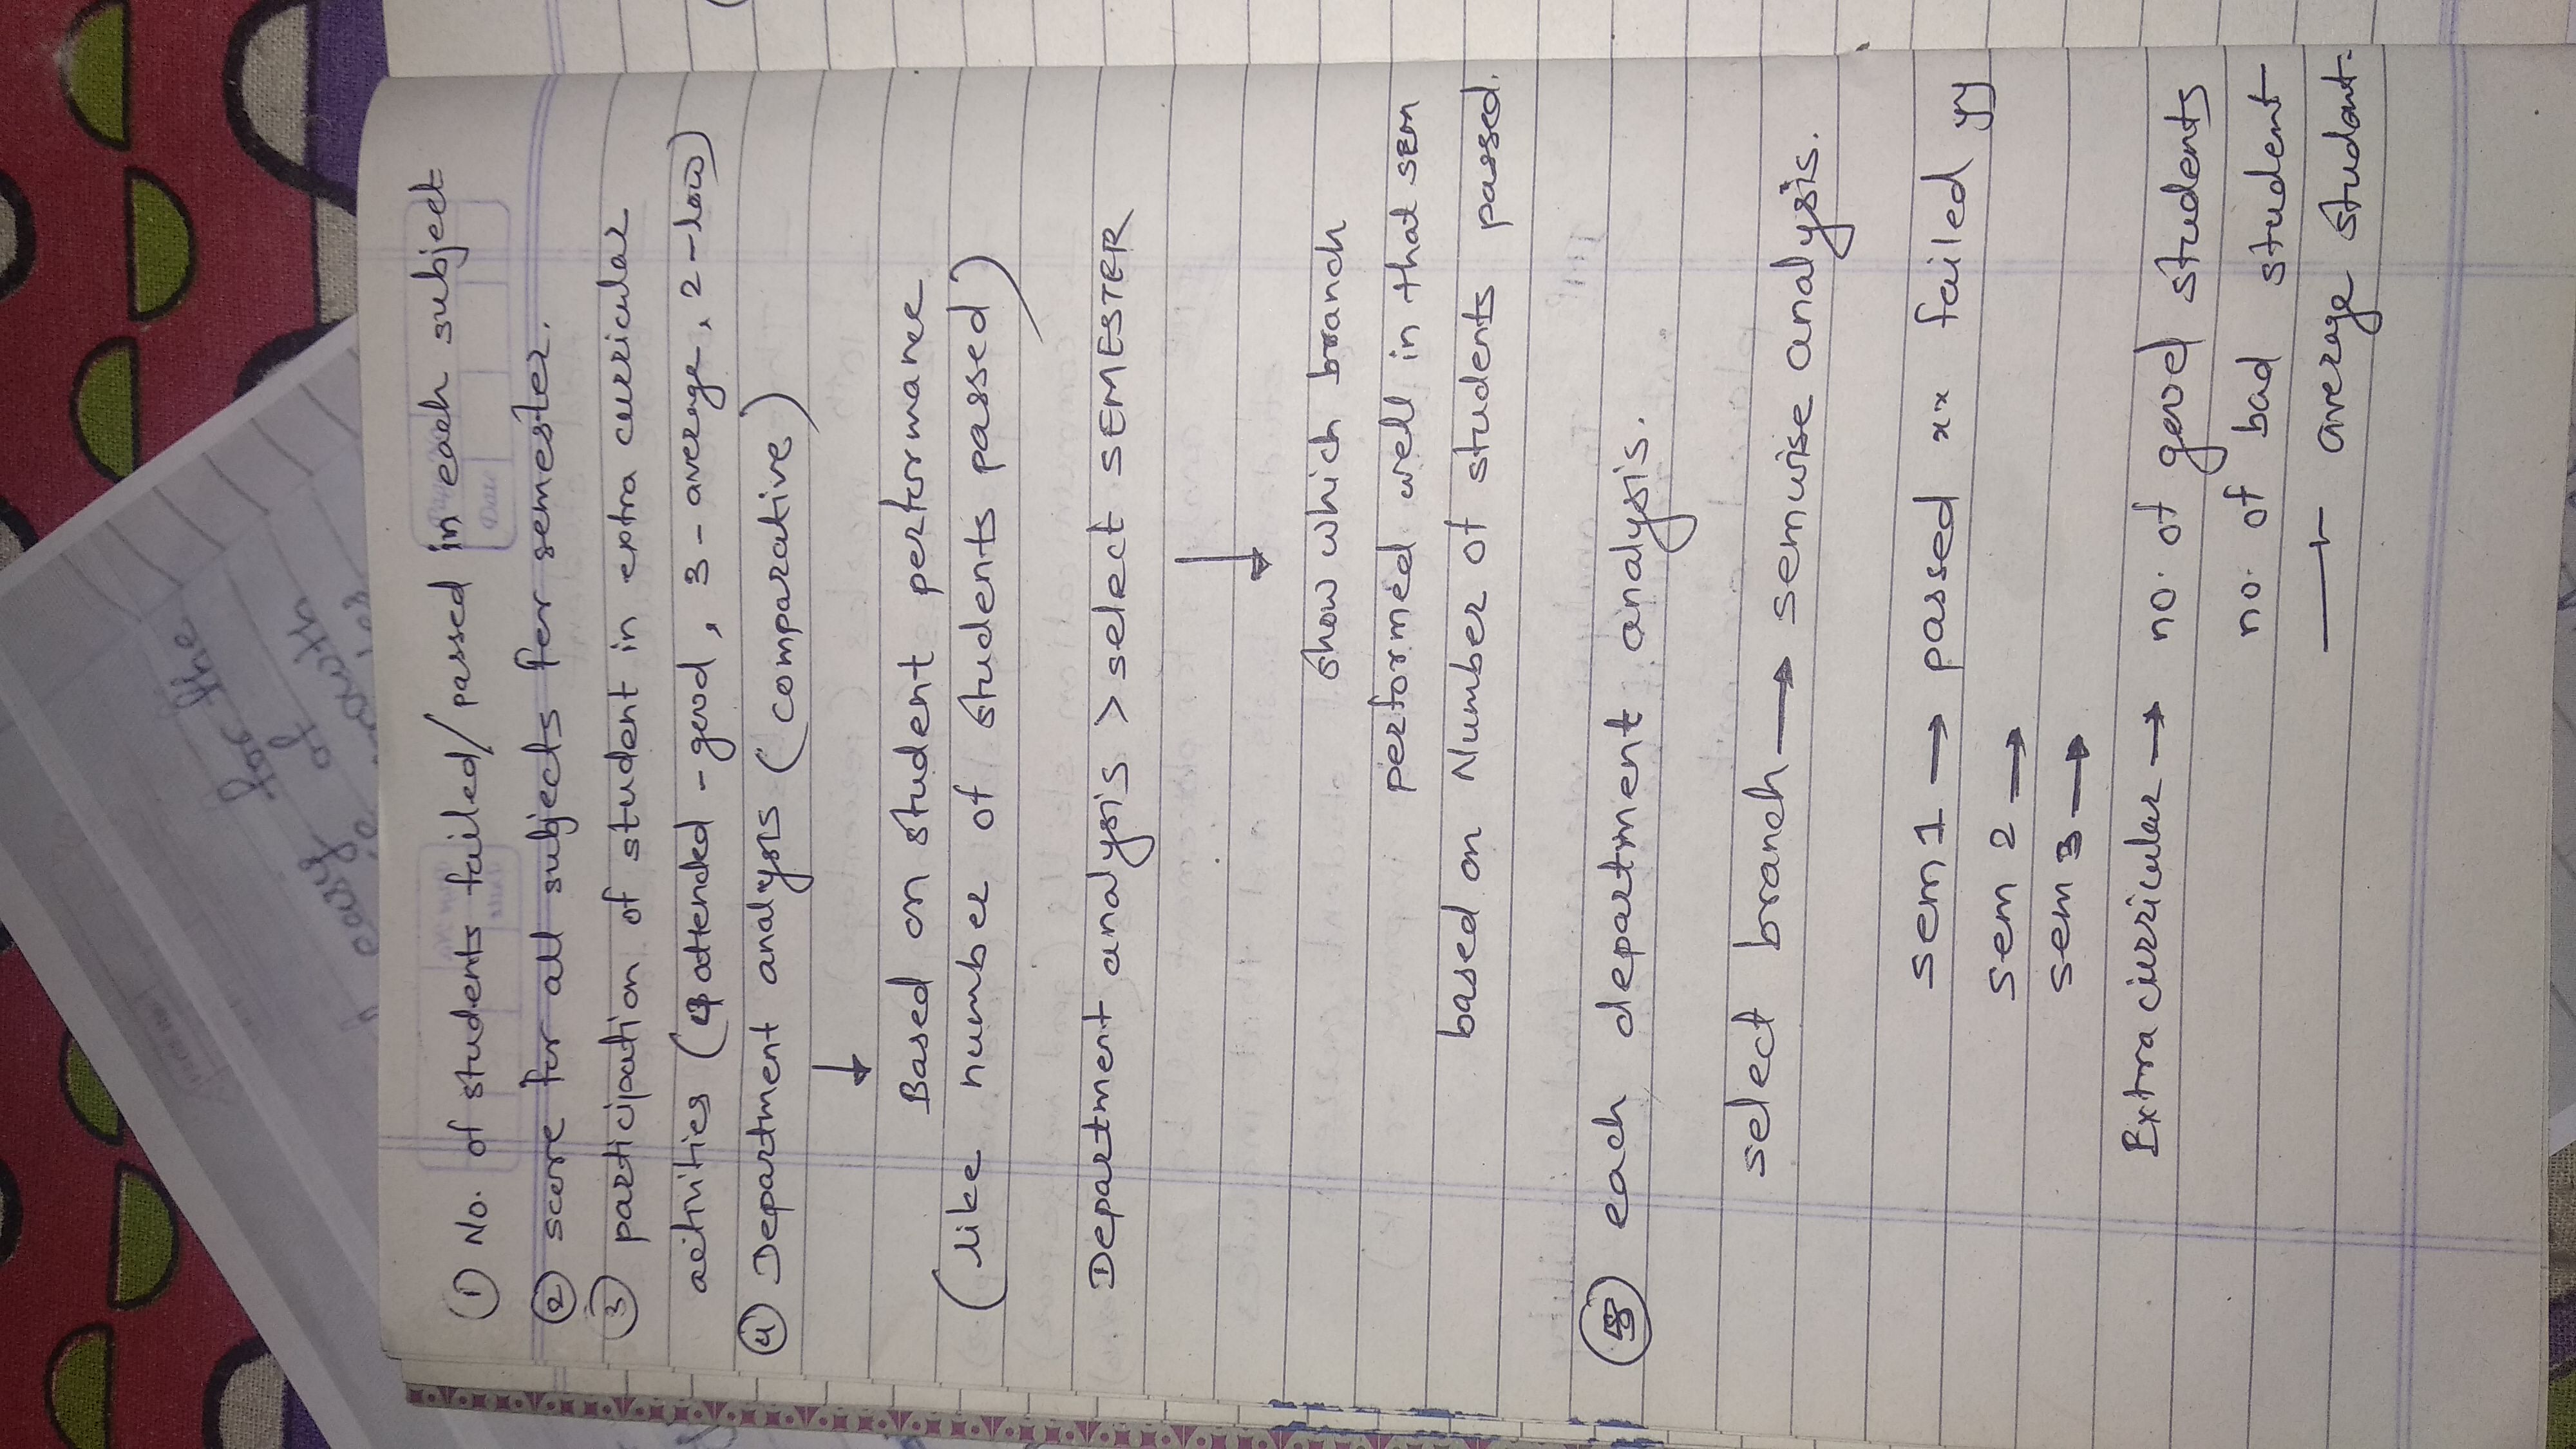 easy for the
of
① No. of students failed/passed in each subject
Date
② score for all subjects per semester.
③ participation of student in extra curricular
activities (4 attended - good, 3 - average, 2 - low)
④ Department analysis (comparative)
↓
Based on student performance
(like number of students passed)
Department analysis > select SEMESTER
↓
show which branch
performed well in that SEM
based on Number of students passed.
⑤ each department analysis.
select branch → semwise analysis.
sem 1 → passed xx failed yy
sem 2 →
sem 3 →
Extra curricular → no. of good students
no. of bad student
average student.